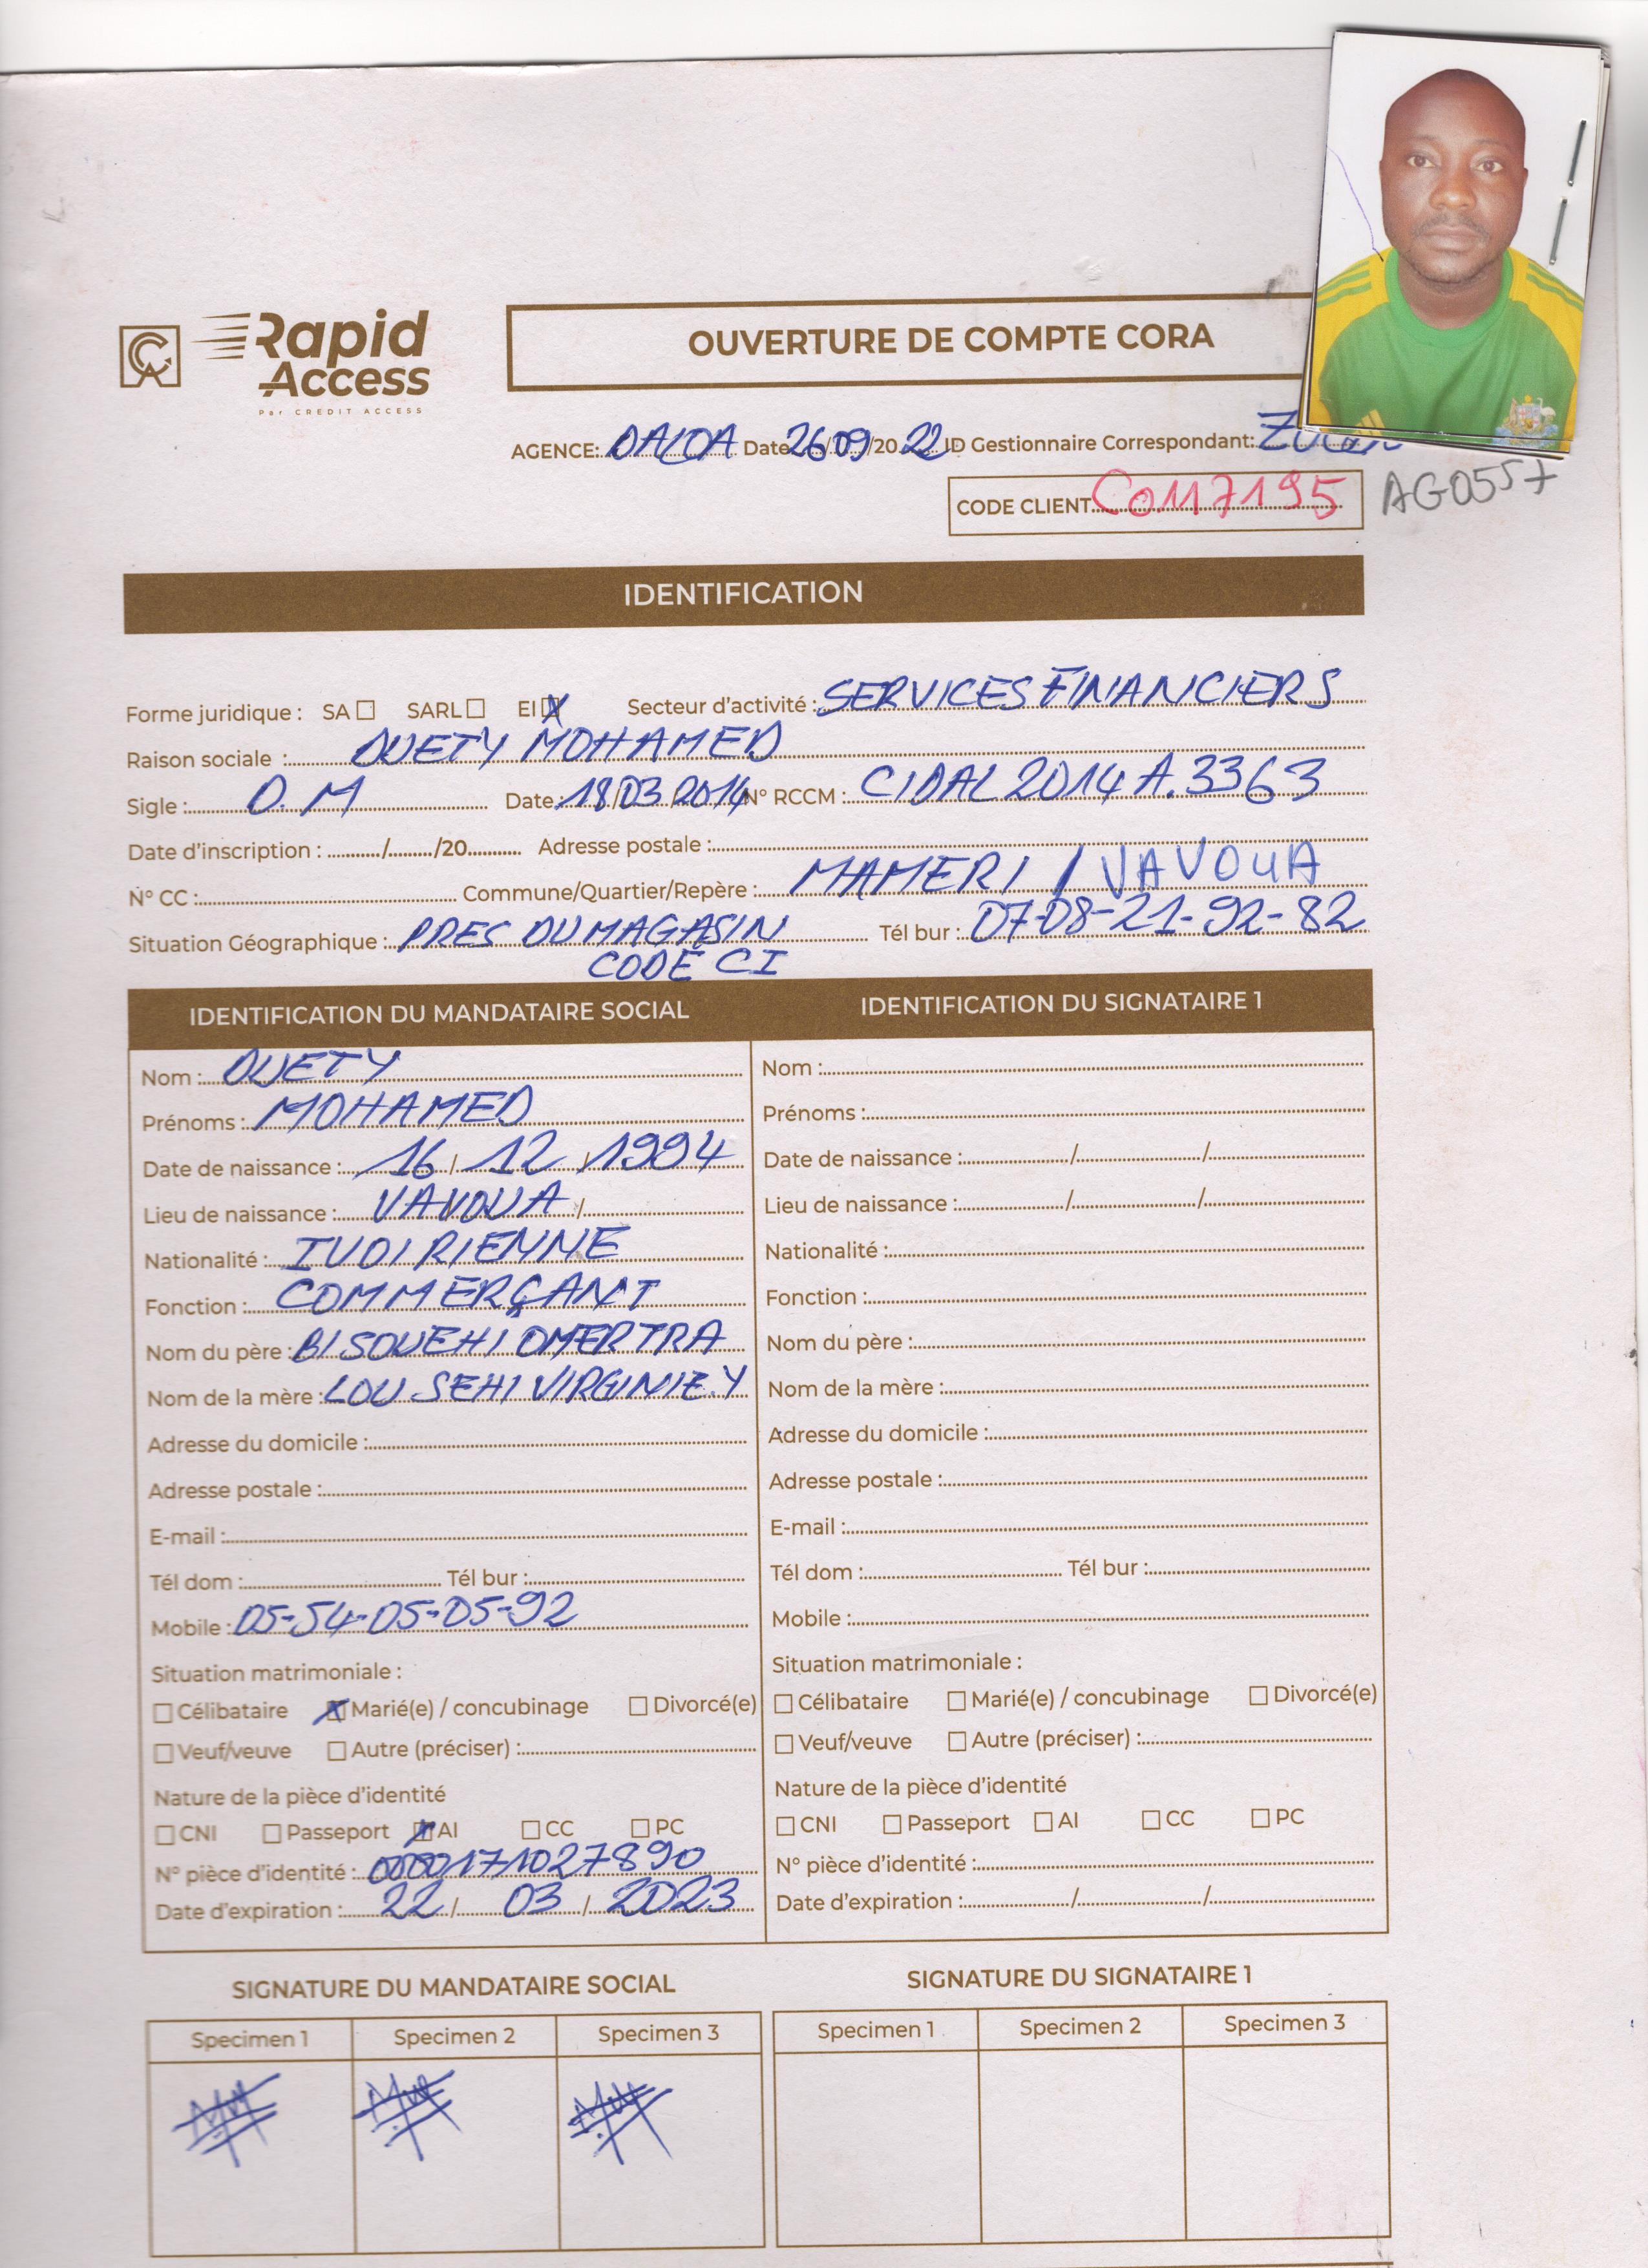 Rapid Access
Par CREDIT ACCESS
OUVERTURE DE COMPTE CORA
AGENCE: DALOA Date 26/09/2022 ID Gestionnaire Correspondant:
CODE CLIENT C0117195 AG0557
IDENTIFICATION
Forme juridique : SA ☐ SARL ☐ EI ☒ Secteur d'activité : SERVICES FINANCIERS
Raison sociale : OUETY MOHAMED
Sigle : O.M Date 18/03/2014 N° RCCM : CIDAL2014A.3363
Date d'inscription : ........./......../20.......... Adresse postale :
N° CC : Commune/Quartier/Repère : MAMERI / VAVOUA
Situation Géographique : PRES DU MAGASIN Tél bur : 07-08-21-92-82
CODE CI
IDENTIFICATION DU MANDATAIRE SOCIAL
Nom : OUETY
Prénoms : MOHAMED
Date de naissance : 16/12/1994
Lieu de naissance : VAVOUA /
Nationalité : IVOIRIENNE
Fonction : COMMERÇANT
Nom du père : BI SOUEHI OMER TRA
Nom de la mère : LOU SEHI VIRGINIE.Y
Adresse du domicile :
Adresse postale :
E-mail :
Tél dom : Tél bur :
Mobile : 05-54-05-05-92
Situation matrimoniale :
☐ Célibataire ☒ Marié(e) / concubinage ☐ Divorcé(e)
☐ Veuf/veuve ☐ Autre (préciser) :
Nature de la pièce d'identité
☐ CNI ☐ Passeport ☒ AI ☐ CC ☐ PC
N° pièce d'identité :
Date d'expiration : 22/03/2023
IDENTIFICATION DU SIGNATAIRE 1
Nom :
Prénoms :
Date de naissance : / /
Lieu de naissance : / /
Nationalité :
Fonction :
Nom du père :
Nom de la mère :
Adresse du domicile :
Adresse postale :
E-mail :
Tél dom : Tél bur :
Mobile :
Situation matrimoniale :
☐ Célibataire ☐ Marié(e) / concubinage ☐ Divorcé(e)
☐ Veuf/veuve ☐ Autre (préciser) :
Nature de la pièce d'identité
☐ CNI ☐ Passeport ☐ AI ☐ CC ☐ PC
N° pièce d'identité :
Date d'expiration : / /
SIGNATURE DU MANDATAIRE SOCIAL
Specimen 1 Specimen 2 Specimen 3
SIGNATURE DU SIGNATAIRE 1
Specimen 1 Specimen 2 Specimen 3